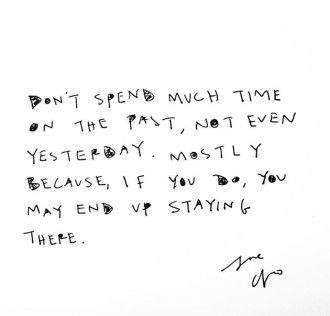 DON'T SPEND MUCH TIME
ON THE PAST, NOT EVEN
YESTERDAY. MOSTLY
BECAUSE, IF YOU DO, YOU
MAY END UP STAYING
THERE.